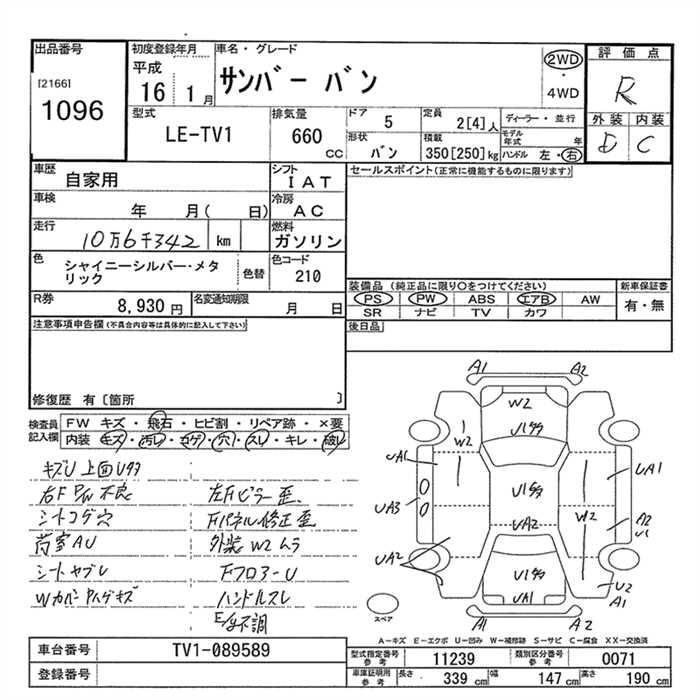 出品番号
[2166]
1096
初度登録年月
平成
16 1月
車名・グレード
サンバー バン
2WD
・
4WD
評価点
R
外装 内装
D C
型式
LE-TV1
排気量
660
CC
ドア
5
定員
2[4]人
形状
バン
積載
350[250]kg
ディーラー・並行
モデル年式 年
ハンドル 左・右
車歴
自家用
シフト
IAT
車検
年 月( 日)
冷房
AC
走行
10万6千342 km
燃料
ガソリン
色
シャイニーシルバー・メタリック
色替
色コード
210
R券
8,930円
名変通知期限
月 日
セールスポイント(正常に機能するものに限ります)
装備品(純正品に限り○をつけてください)
新車保証書
PS PW ABS エアB AW
SR ナビ TV カワ
有・無
後日品
注意事項申告欄(不具合内容等は具体的に記入して下さい)
修復歴 有〔箇所 〕
検査員記入欄
FW キズ・飛石・ヒビ割・リペア跡・×要
内装 キズ・汚レ・コゲ・穴・スレ・キレ・破レ
キズU 上面U多
右F P/W不良
左Fピラー歪、
シートコゲ穴
Fパネル修正歪
荷室AU
外装W2ムラ
シートヤブレ
FフロアーU
ハンドルスレ
E/g不調
A1 A2
W2
U1多
W2
UA1
UA1
U1多
UA3
W2
A2
U1
UA2
UA2
U1多
U2
A1
UA1
A1 A2
スペア
A-キズ E-エクボ U-凹み W-補修跡 S-サビ C-腐食 XX-交換済
車台番号
TV1-089589
登録番号
型式指定番号
参考
11239
類別区分番号
参考
0071
車庫証明用
参考
長さ
339 cm
幅
147 cm
高さ
190 cm